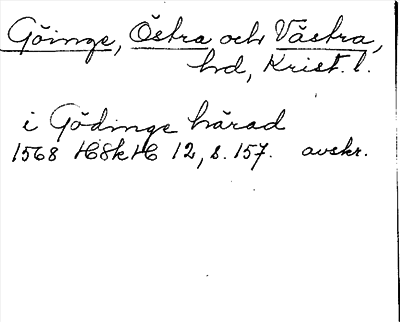 Göinge, Östra och Västra,
hd, Krist. l.
i Gödinge härad
1568 HSkH 12, s. 157. avskr.